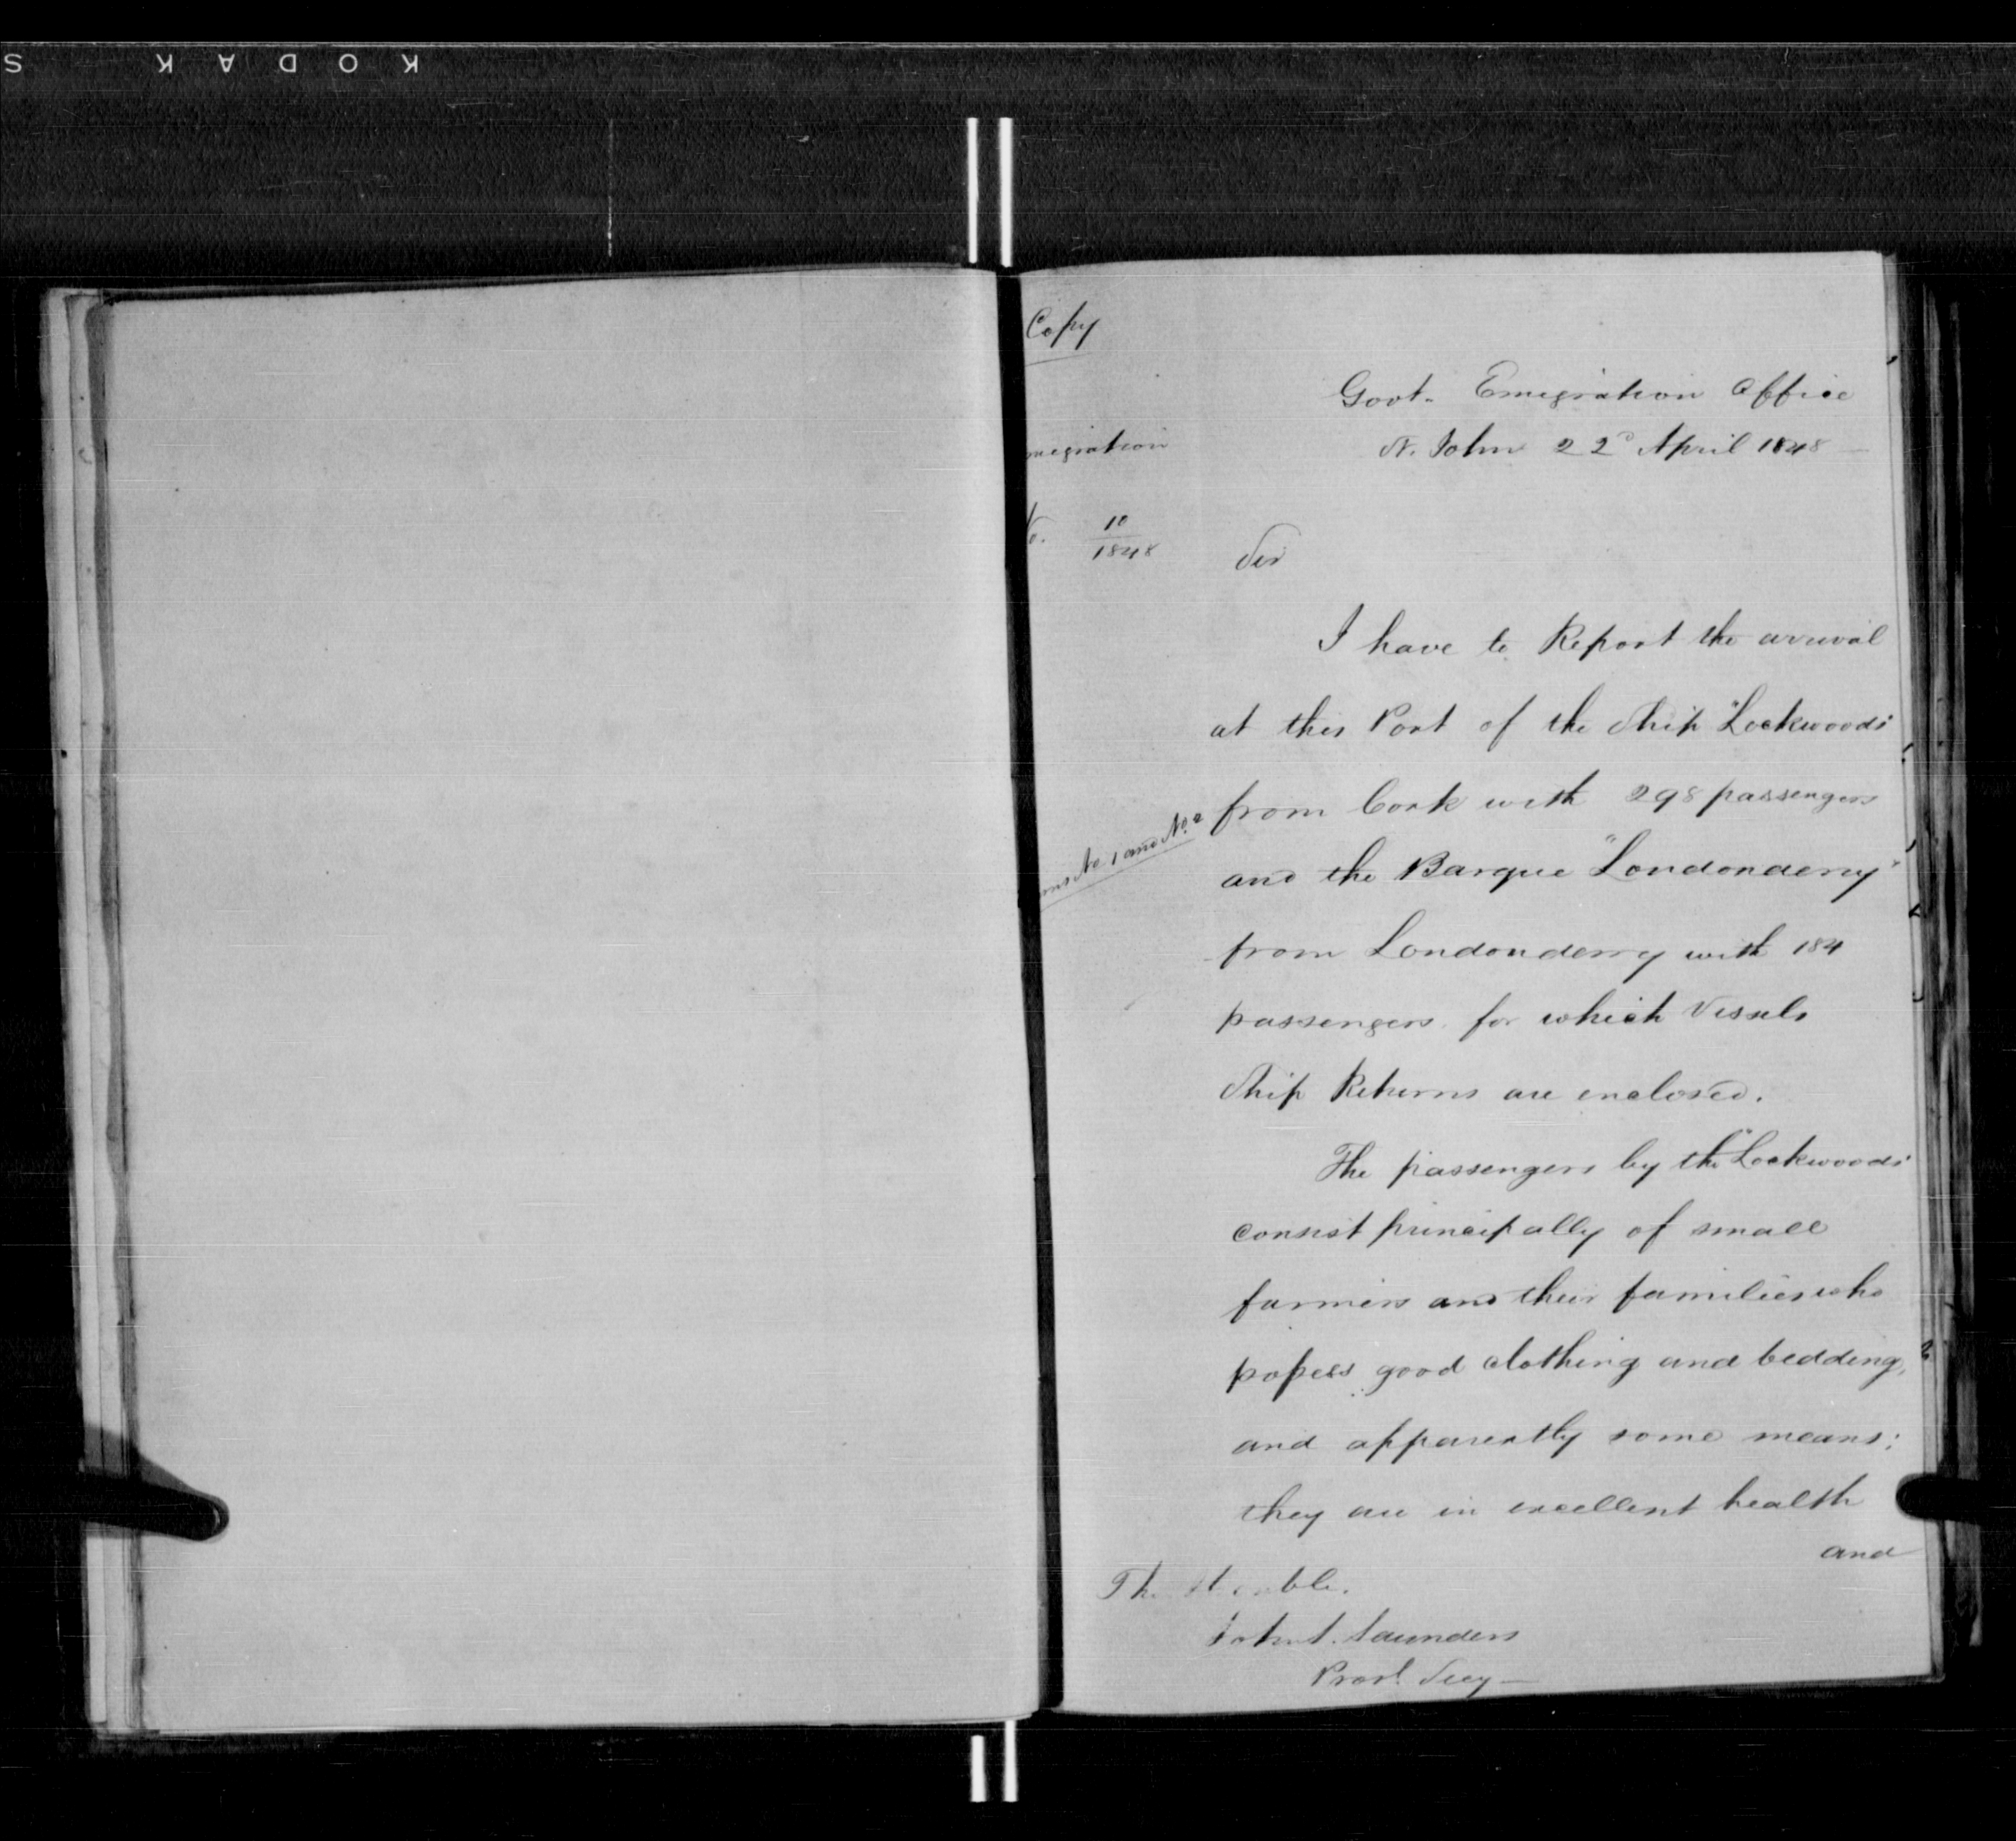 KODAK S
Copy
Govt. Emigration Office
St. John 22d April 1848
migration
No. 10
1848
Sir
I have to Report the arrival
at this Port of the Ship "Lockwoods"
from Cork with 298 passengers
rns No 1 and No. 2
and the Barque "Londonderry"
from Londonderry with 184
passengers for which Vessels
Ship Returns are enclosed.
The passengers by the "Lockwoods"
consist principally of small
farmers and their families who
possess good clothing and bedding,
and apparently some means;
they are in excellent health
and
The Honble.
John S. Saunders
Provl. Secy—